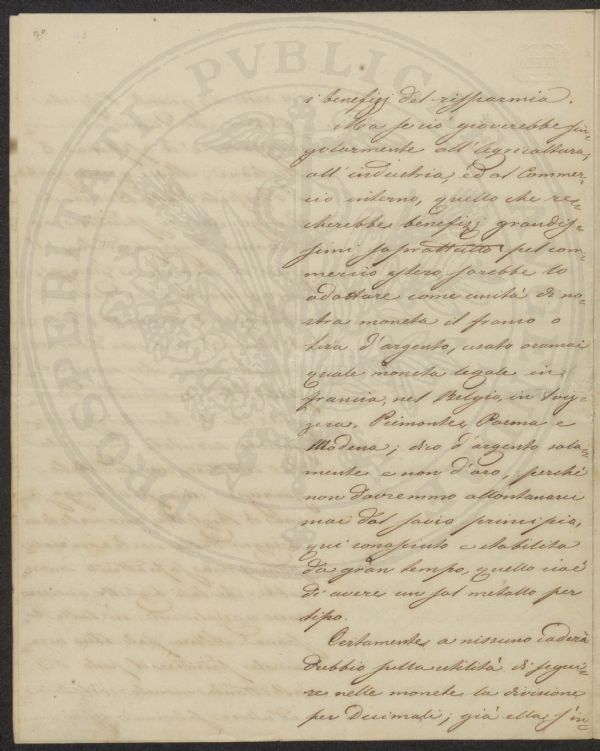 20
PROSPERITATI PVBLIC
i benefizj del risparmio.
Ma se ciò gioverebbe sin=
golarmente all'Agricoltura,
all'industria, ed al Commer=
cio interno, quello che re=
cherebbe benefizj grandis=
simi soprattutto pel com=
mercio estero, sarebbe lo
adottare come unità di no=
stra moneta il franco o
lira d'argento, usato oramai
quale moneta legale in
Francia, nel Belgio, in Sviz=
zera, Piemonte, Parma e
Modena; dico d'argento sola=
mente e non d'oro, perchè
non dovremmo allontanarci
mai dal savio principio,
qui conosciuto e stabilito
da gran tempo, quello cioè
di avere un sol metallo per
tipo.
Certamente a nissuno caderà
dubbio sulla utilità di segui=
re nelle monete la divisione
per Decimali; già ella s'in